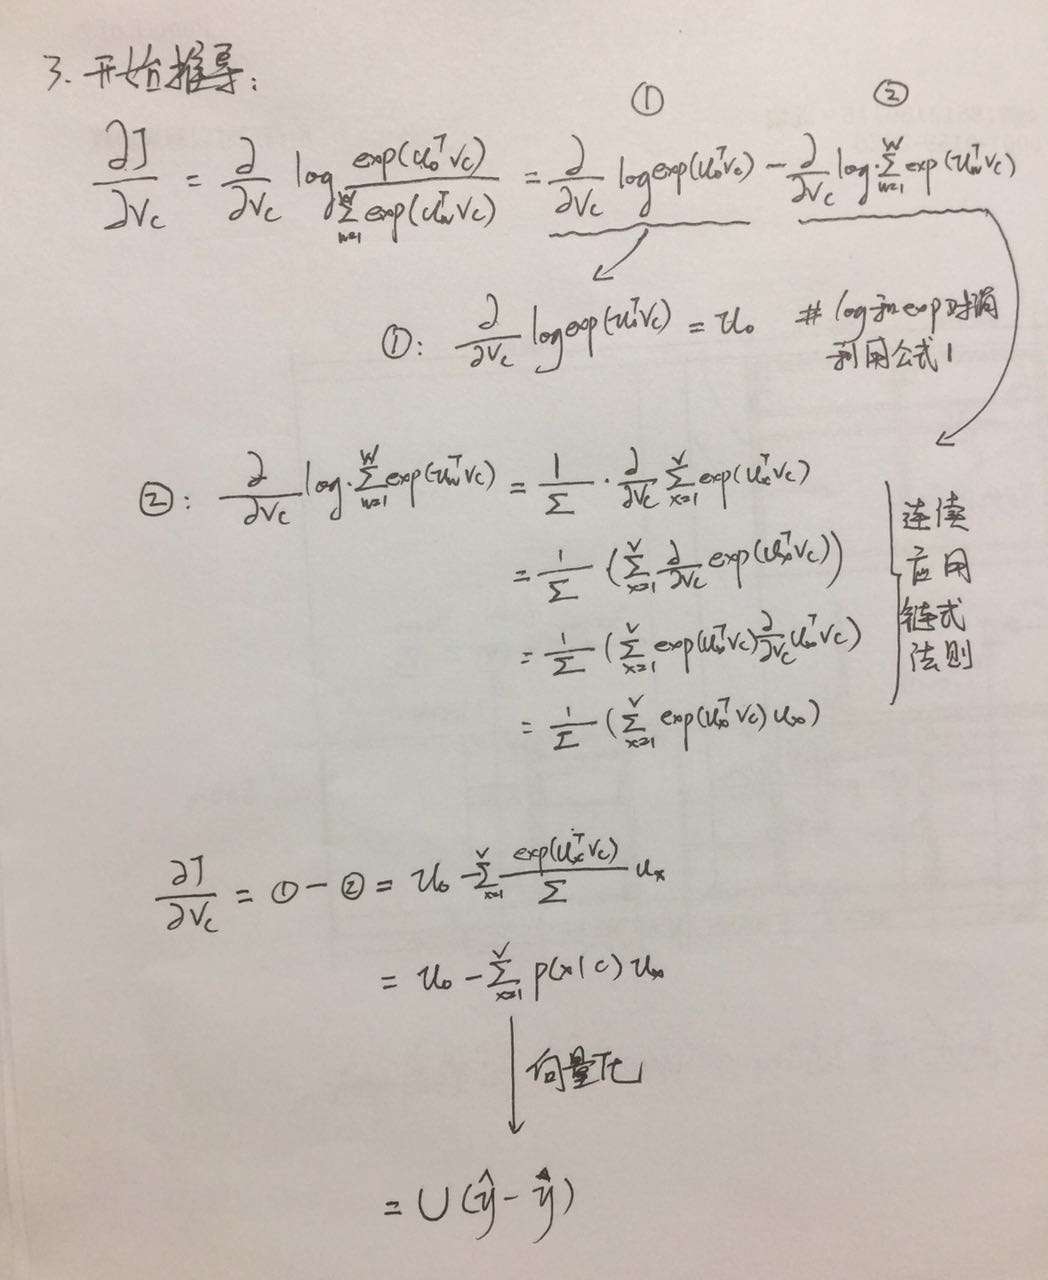 3. 开始推导:
① ②
∂J/∂Vc = ∂/∂Vc log exp(u₀ᵀVc)/∑_{w=1}^{W} exp(u_wᵀVc) = ∂/∂Vc log exp(u₀ᵀVc) − ∂/∂Vc log·∑_{w=1}^{W} exp(u_wᵀVc)
①: ∂/∂Vc log exp(u₀ᵀVc) = u₀ # log和exp对消
利用公式1
②: ∂/∂Vc log·∑_{w=1}^{W} exp(u_wᵀVc) = 1/∑ · ∂/∂Vc ∑_{x=1}^{V} exp(u_xᵀVc)
= 1/∑ (∑_{x=1}^{V} ∂/∂Vc exp(u_xᵀVc))
= 1/∑ (∑_{x=1}^{V} exp(u_xᵀVc) ∂/∂Vc u_xᵀVc)
= 1/∑ (∑_{x=1}^{V} exp(u_xᵀVc) u_x)
连续
应用
链式
法则
∂J/∂Vc = ① − ② = u₀ − ∑_{x=1}^{V} exp(u_xᵀVc)/∑ u_x
= u₀ − ∑_{x=1}^{V} p(x|c) u_x
向量化
= U(ŷ − y)